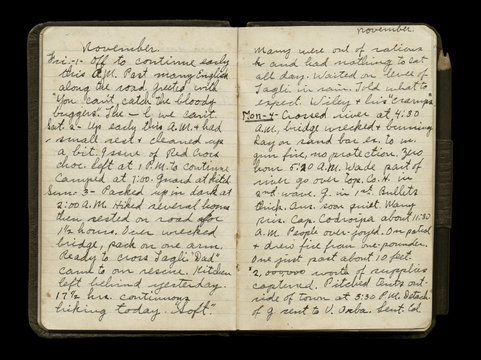 November.
Fri-1- Off to continue early
this A.M. Past many English
along the road. Greeted with
"You can't catch the bloody
buggers". The - l we can't.
Sat. 2- Up early this A.M. & had
small rest & cleaned up
a bit. Issue of Red Cross
choc. Left at 1 P.M. to continue
Camped at 7:00. Guard at
Sun- 3- Packed up in dark at
2:00 A.M. Hiked several hours
then rested on road for
1½ hours. Over wrecked
bridge, pack on one arm.
Ready to cross Tagli. "Dad"
came to our rescue. Kitchen
left behind yesterday.
17½ hrs. continuous
hiking today. "Soft".
November
Many were out of rations
& and had nothing to eat
all day. Waited on levee of
Tagli in rain. Told what to
expect. Wiley & his "cramps"
Mon-4- Crossed river at 4:30
A.M., bridge wrecked & burning
hay on sand bar es. to m.
gun fire, no protection. Zero
hour 5:20 A.M. Wade part of
river go over top. Co. H. in
2nd wave. G. in 1st. Bullets
thick. Aus. soon quiet. Many
pris. Cap. Codroipo about 11:30
A.M. People over-joyed. On patrol
& drew fire from one-pounder.
One just past about 10 feet.
$2,000,000 worth of supplies
captured. Pitched tents out-
side of town at 5:30 P.M. Detach.
of G. sent to V. Orba. Lieut. Col.